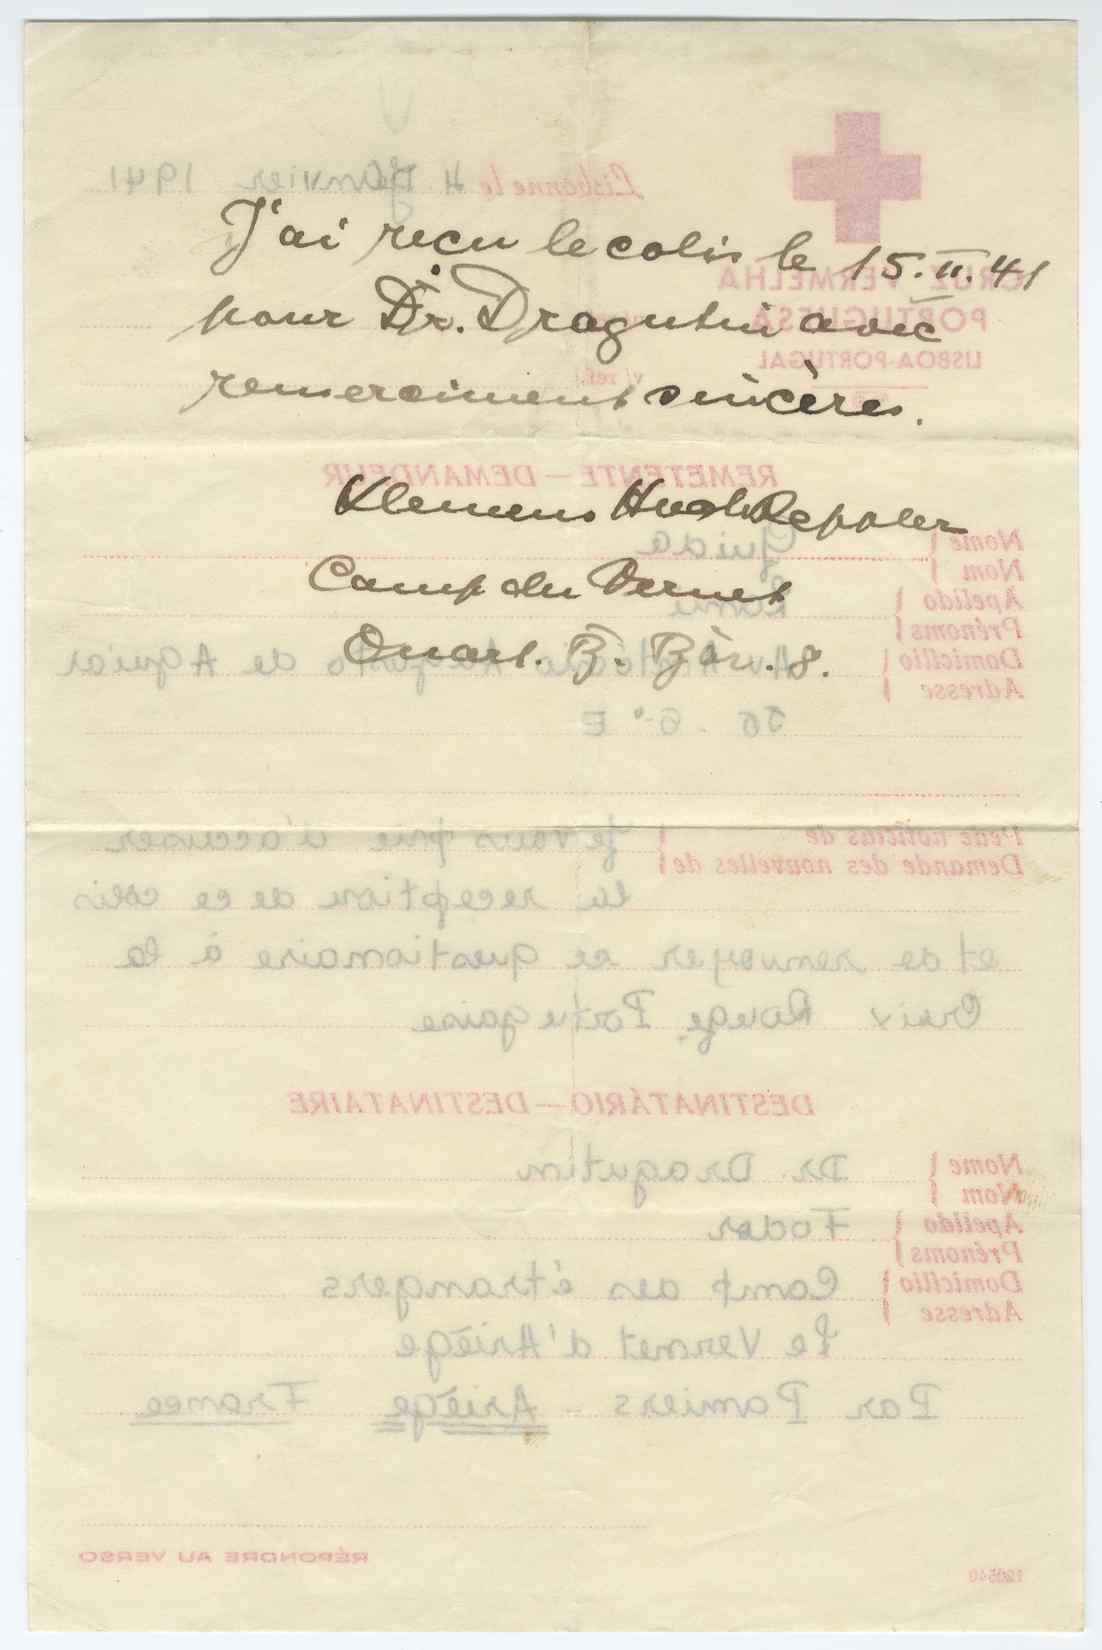 J'ai recu le colis le 15.II.41
pour Dr. Dragutin avec
remerciment sincères.
Klemens
Camp du Vernet
Quart. B. Bar. 8.
Lisbonne le 4 Janvier 1941
CRUZ VERMELHA
PORTUGUESA
LISBOA-PORTUGAL
v/ ref.
REMETENTE — DEMANDEUR
Nome
Nom
Guida
Apelido
Prénoms
Domicílio
Adresse
Augusto de Aguiar
56 - 6º E
Pede notícias de
Demande des nouvelles de
Je vous prie d'accuser
la reception de ce colis
et de renvoyer ce questionaire à la
Croix Rouge Portugaise
DESTINATÁRIO — DESTINATAIRE
Nome
Nom
Dr. Dragutin
Apelido
Prénoms
Fodor
Domicílio
Adresse
Camp des étrangers
Le Vernet d'Ariège
Par Pamiers - Ariège France
RÉPONDRE AU VERSO